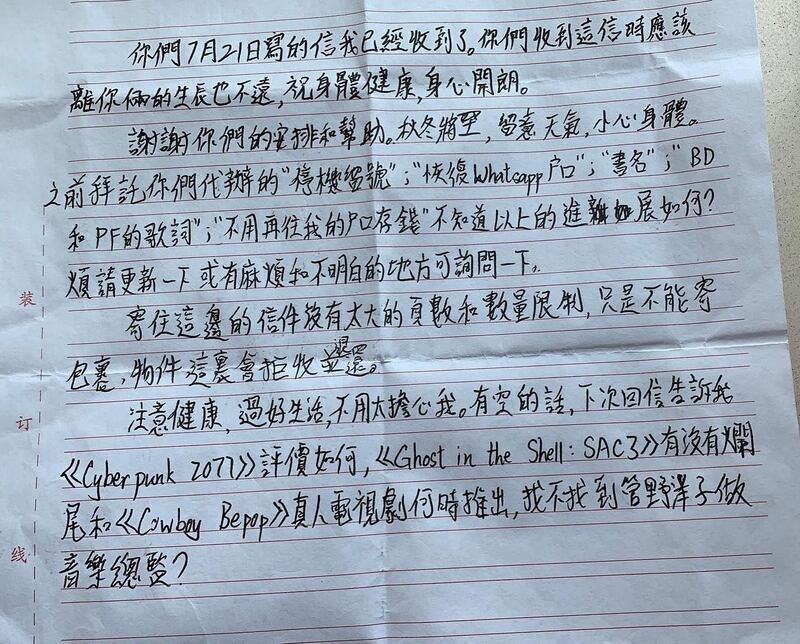 你們7月21日寫的信我已經收到了。你們收到這信時應該
離你倆的生辰也不遠,祝身體健康,身心開朗。
謝謝你們的安排和幫助。秋冬將至,留意天氣,小心身體。
之前拜託你們代辦的"停機留號";"恢復Whatsapp戶口";"書名";"BD
和PF的歌詞";"不用再往我的戶口存錢"不知道以上的進展如何?
煩請更新一下或有麻煩和不明白的地方可詢問一下。
寄住這邊的信件沒有太大的頁數和數量限制,只是不能寄
包裹,物件這裏會拒收並退還。
注意健康,過好生活,不用太擔心我。有空的話,下次回信告訴我
《Cyberpunk 2077》評價如何,《Ghost in the Shell: SAC3》有沒有爛
尾和《Cowboy Bepop》真人電視劇何時推出,找不找到管野洋子做
音樂總監?
装
订
线